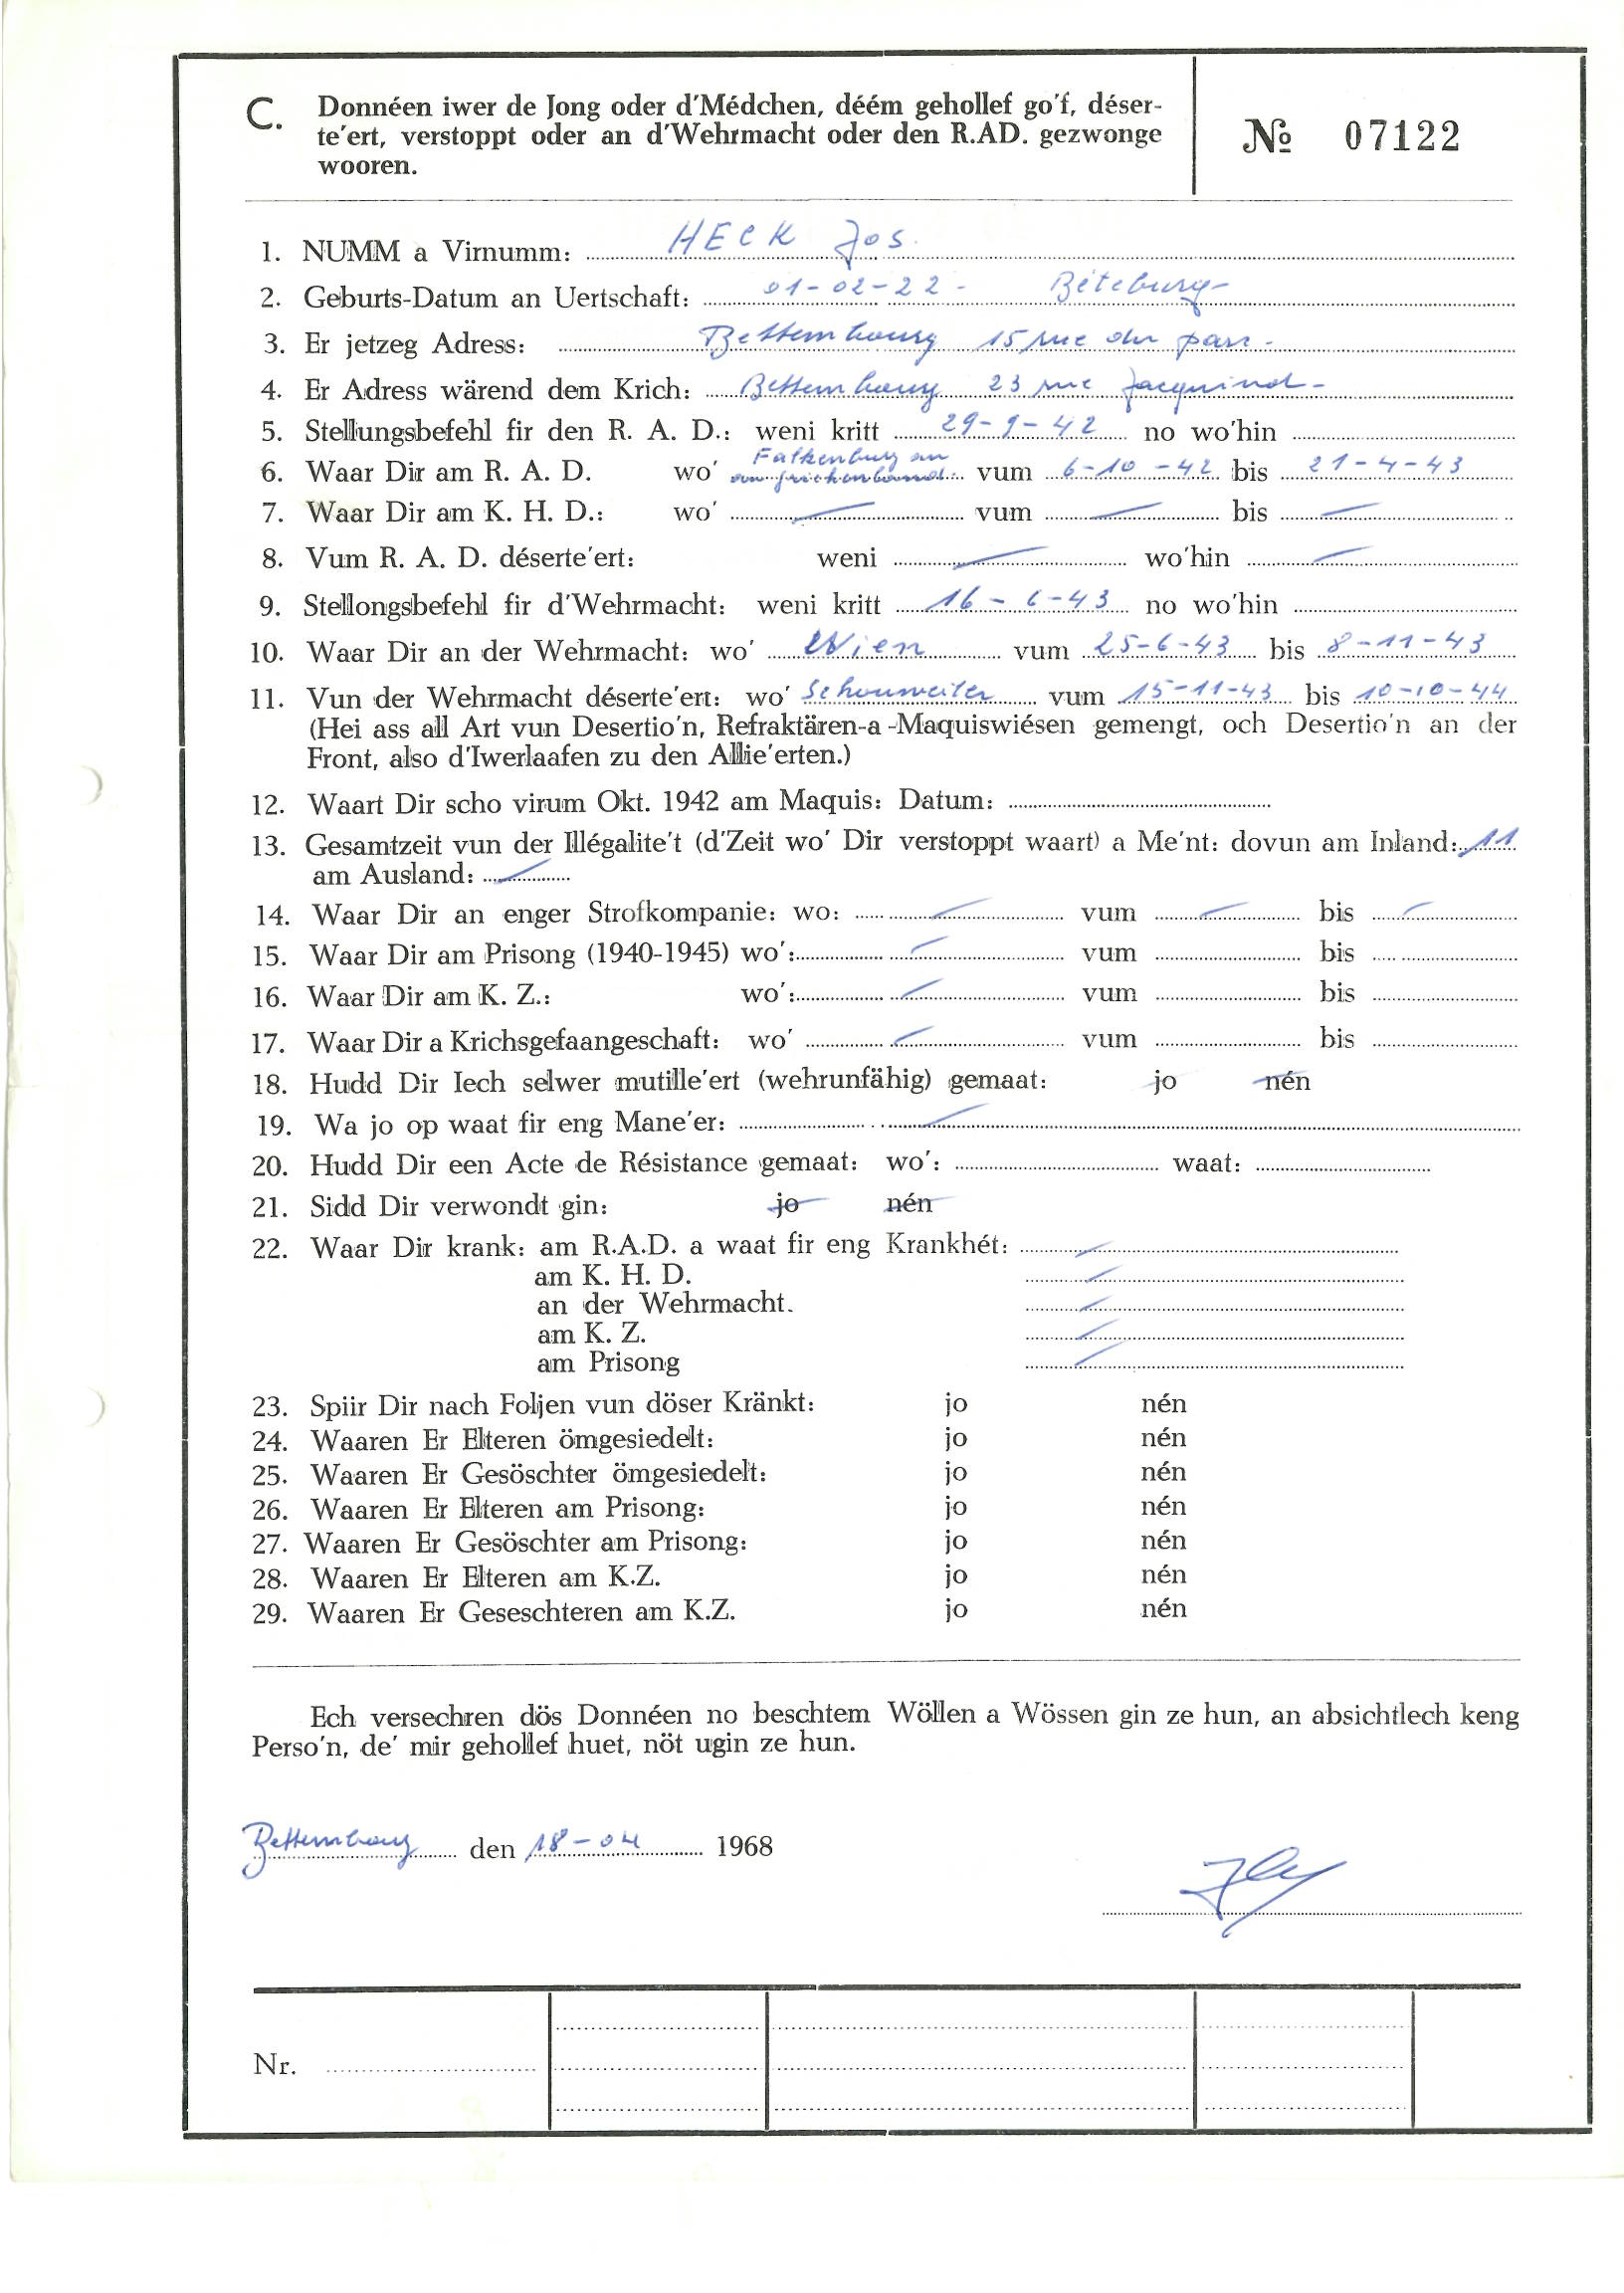 C. Donnéen iwer de Jong oder d'Médchen, déém gehollef go'f, déser-
te'ert, verstoppt oder an d'Wehrmacht oder den R.AD. gezwonge
wooren.
№ 07122
1. NUMM a Virnumm: HECK Jos.
2. Geburts-Datum an Uertschaft: 01-02-22 - Beteburg-
3. Er jetzeg Adress: Bettembourg 15 rue du parc -
4. Er Adress wärend dem Krich: Bettembourg 23 rue Jacquinot -
5. Stellungsbefehl fir den R. A. D.: weni kritt 29-9-42 no wo'hin
6. Waar Dir am R. A. D. wo' Falkenburg an vum 6-10-42 bis 21-4-43
7. Waar Dir am K. H. D.: wo' — vum — bis —
8. Vum R. A. D. déserte'ert: weni — wo'hin —
9. Stellongsbefehl fir d'Wehrmacht: weni kritt 16-6-43 no wo'hin
10. Waar Dir an der Wehrmacht: wo' Wien vum 25-6-43 bis 8-11-43
11. Vun der Wehrmacht déserte'ert: wo' Schouweiler vum 15-11-43 bis 10-10-44
(Hei ass all Art vun Desertio'n, Refraktären-a-Maquiswiésen gemengt, och Desertio'n an der
Front, also d'Iwerlaafen zu den Allie'erten.)
12. Waart Dir scho virum Okt. 1942 am Maquis: Datum:
13. Gesamtzeit vun der Illégalite't (d'Zeit wo' Dir verstoppt waart) a Me'nt: dovun am Inland: 11
am Ausland: —
14. Waar Dir an enger Strofkompanie: wo: — vum — bis —
15. Waar Dir am Prisong (1940-1945) wo': — vum bis
16. Waar Dir am K. Z.: wo': — vum bis
17. Waar Dir a Krichsgefaangeschaft: wo' — vum bis
18. Hudd Dir Iech selwer mutille'ert (wehrunfähig) gemaat: jo nén
19. Wa jo op waat fir eng Mane'er: —
20. Hudd Dir een Acte de Résistance gemaat: wo': waat:
21. Sidd Dir verwondt gin: jo nén
22. Waar Dir krank: am R.A.D. a waat fir eng Krankhét: —
am K. H. D. —
an der Wehrmacht. —
am K. Z. —
am Prisong —
23. Spiir Dir nach Foljen vun döser Kränkt: jo nén
24. Waaren Er Elteren ömgesiedelt: jo nén
25. Waaren Er Gesöschter ömgesiedelt: jo nén
26. Waaren Er Elteren am Prisong: jo nén
27. Waaren Er Gesöschter am Prisong: jo nén
28. Waaren Er Elteren am K.Z. jo nén
29. Waaren Er Geseschteren am K.Z. jo nén
Ech versechren dös Donnéen no beschtem Wöllen a Wössen gin ze hun, an absichtlech keng
Perso'n, de' mir gehollef huet, nöt ugin ze hun.
Bettembourg den 18-04 1968
Nr.